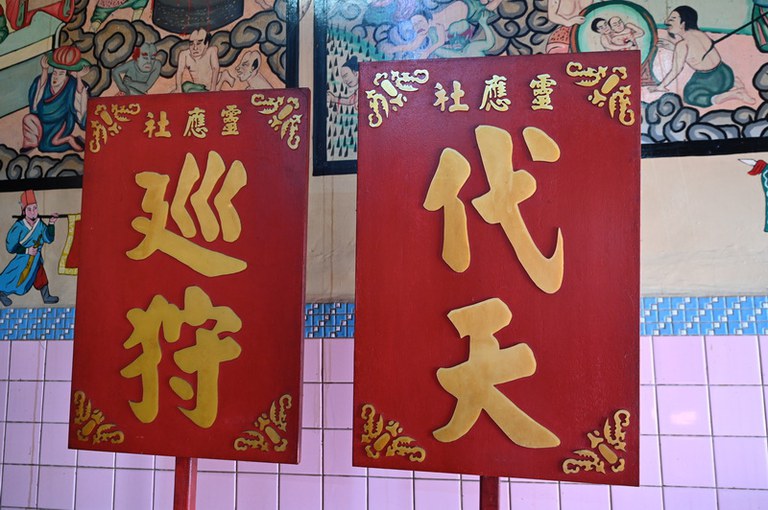 社應靈
巡
狩
社應靈
代
天